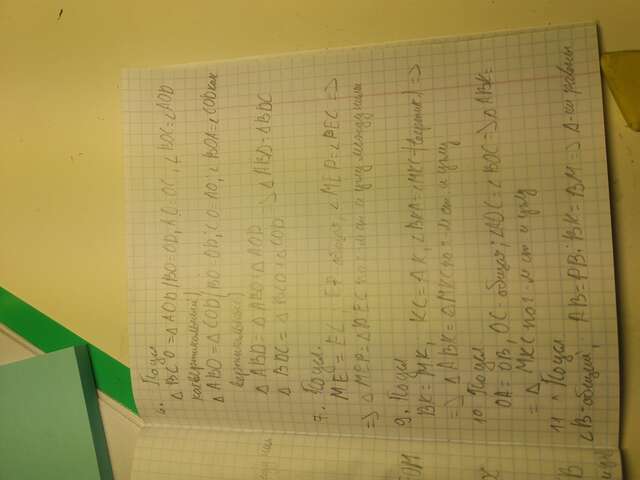 6. По усл
△BCO = △AOD (BO=OD, AO=OC, ∠BOC=∠AOD
как вертикальный)
△ABO = △COD (BO=OD; CO=AO; ∠BOA=∠COD как
вертикальные)
△ABD = △ABO+△AOD
△BDC = △BCO+△COD => △ABD=△BDC
7. По усл.
ME = EC, EP общая, ∠MEP=∠PEC =>
=> △MEP=△PEC по 2-м ст. и углу между ними
9. По усл
BK = MK, KC=AK, ∠BKA=∠MKC (вертик.) =>
=> △ABK = △MKC по 2-м ст. и углу
10 По усл
OA = OB, OC-общая; ∠AOC=∠BOC => △ABK=
= △MKC по 2-м ст и углу
11 По усл.
∠B-общий, AB=PB; BK=BM => △-ки равны